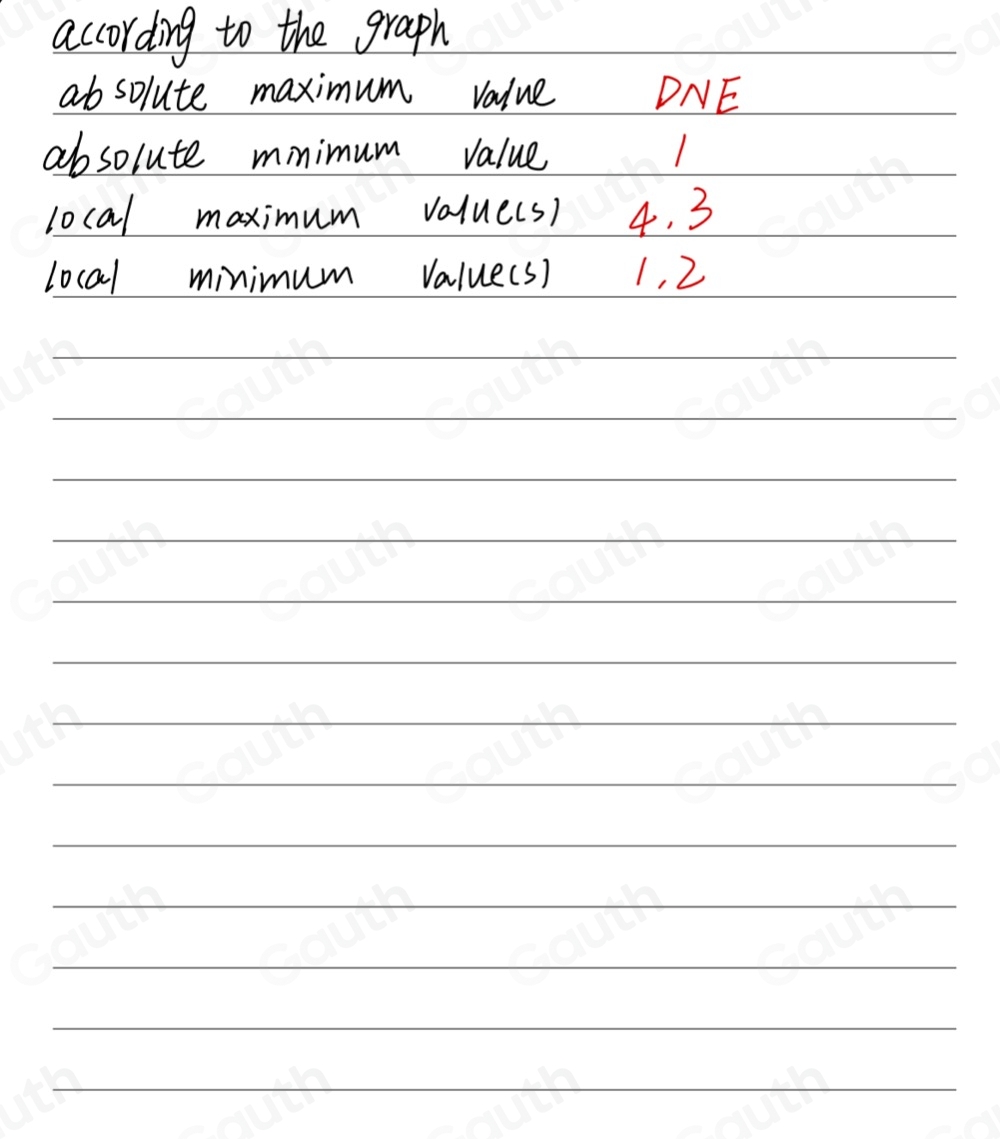 according to the graph
absolute maximum value DNE
absolute minimum value 1
local maximum value(s) 4, 3
local minimum value(s) 1, 2